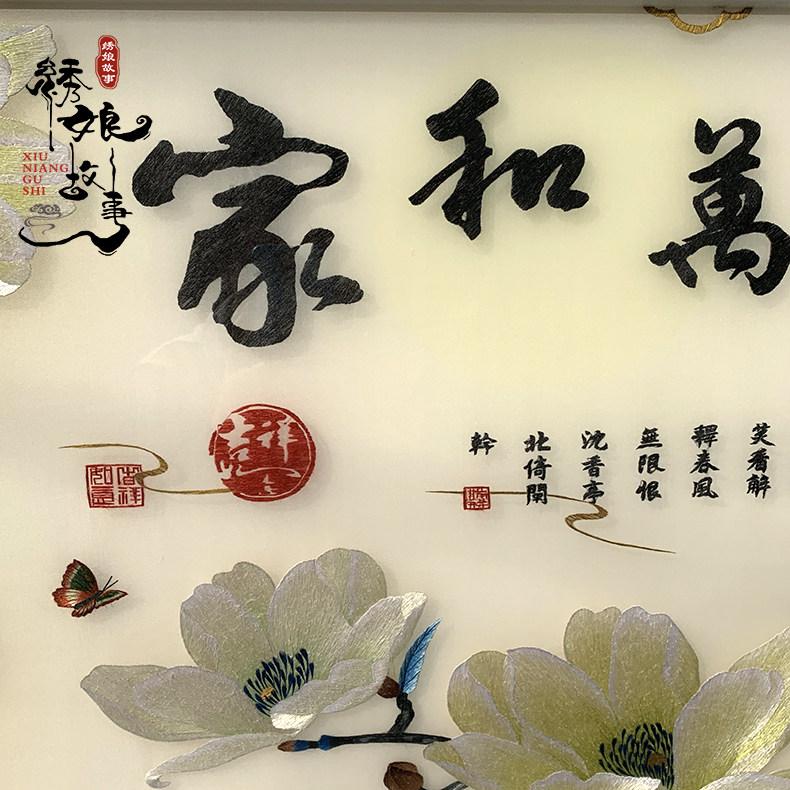 绣娘故事
綉娘故事
XIU
NIANG
GU
SHI
家和萬
笑看解
釋春風
無限恨
沈香亭
北倚闌
幹
吉祥
吉祥如意